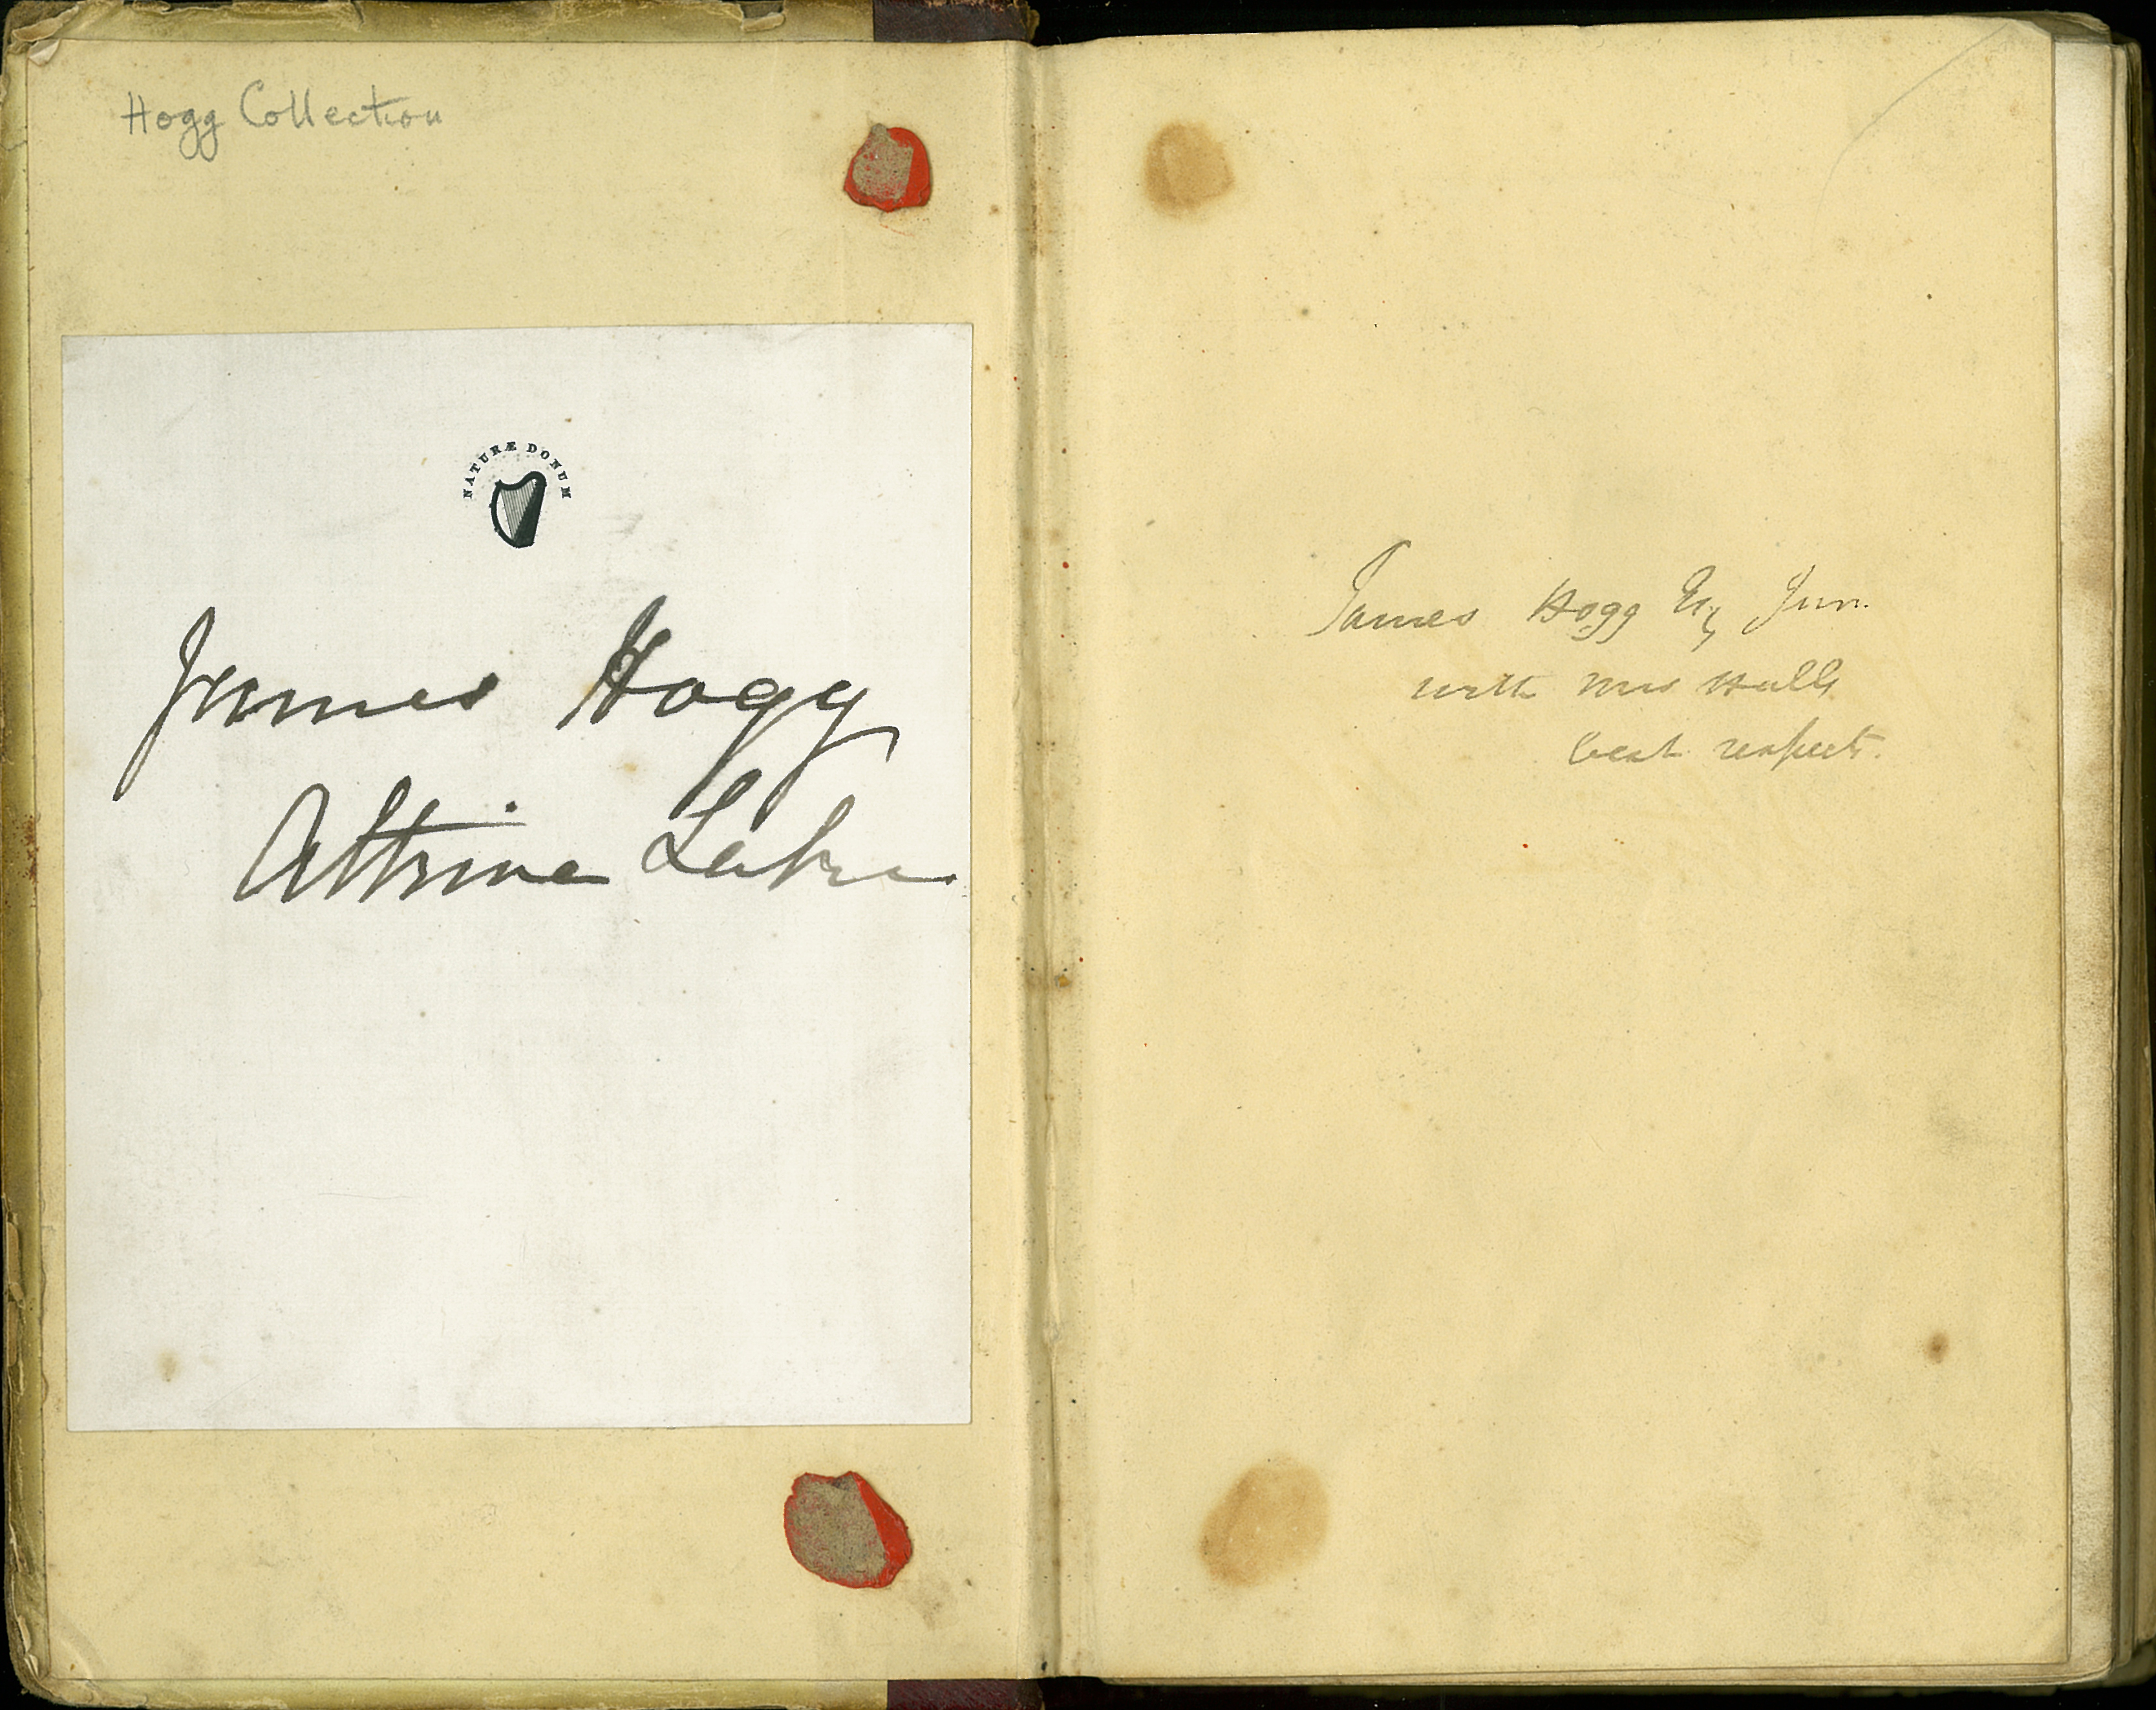 Hogg Collection
NATURÆ DONUM
James Hogg
Altrive Lake
James Hogg Esq Jun.
with Mrs Halls
best respects.